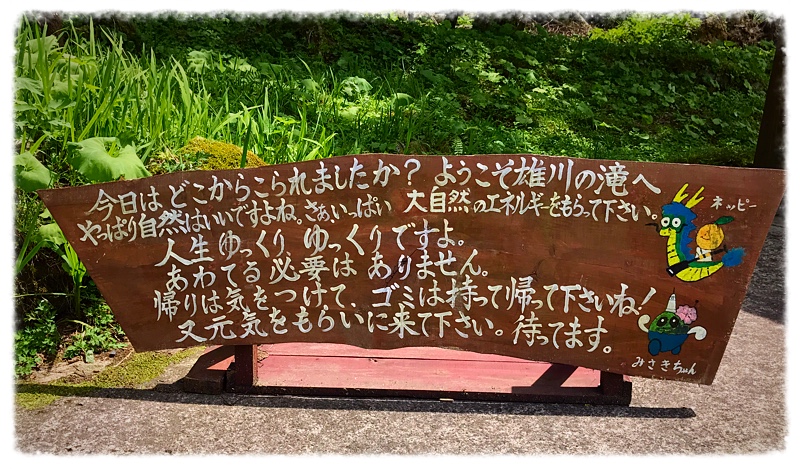 今日は どこからこられましたか? ようこそ雄川の滝へ
やっぱり自然はいいですよね。さぁいっぱい 大自然のエネルギーをもらって下さい。
人生 ゆっくり ゆっくりですよ。
あわてる必要は ありません。
帰りは気をつけて、ゴミは持って帰って下さいね!
又元気をもらいに来て下さい。待ってます。
ネッピー
みさきちゃん